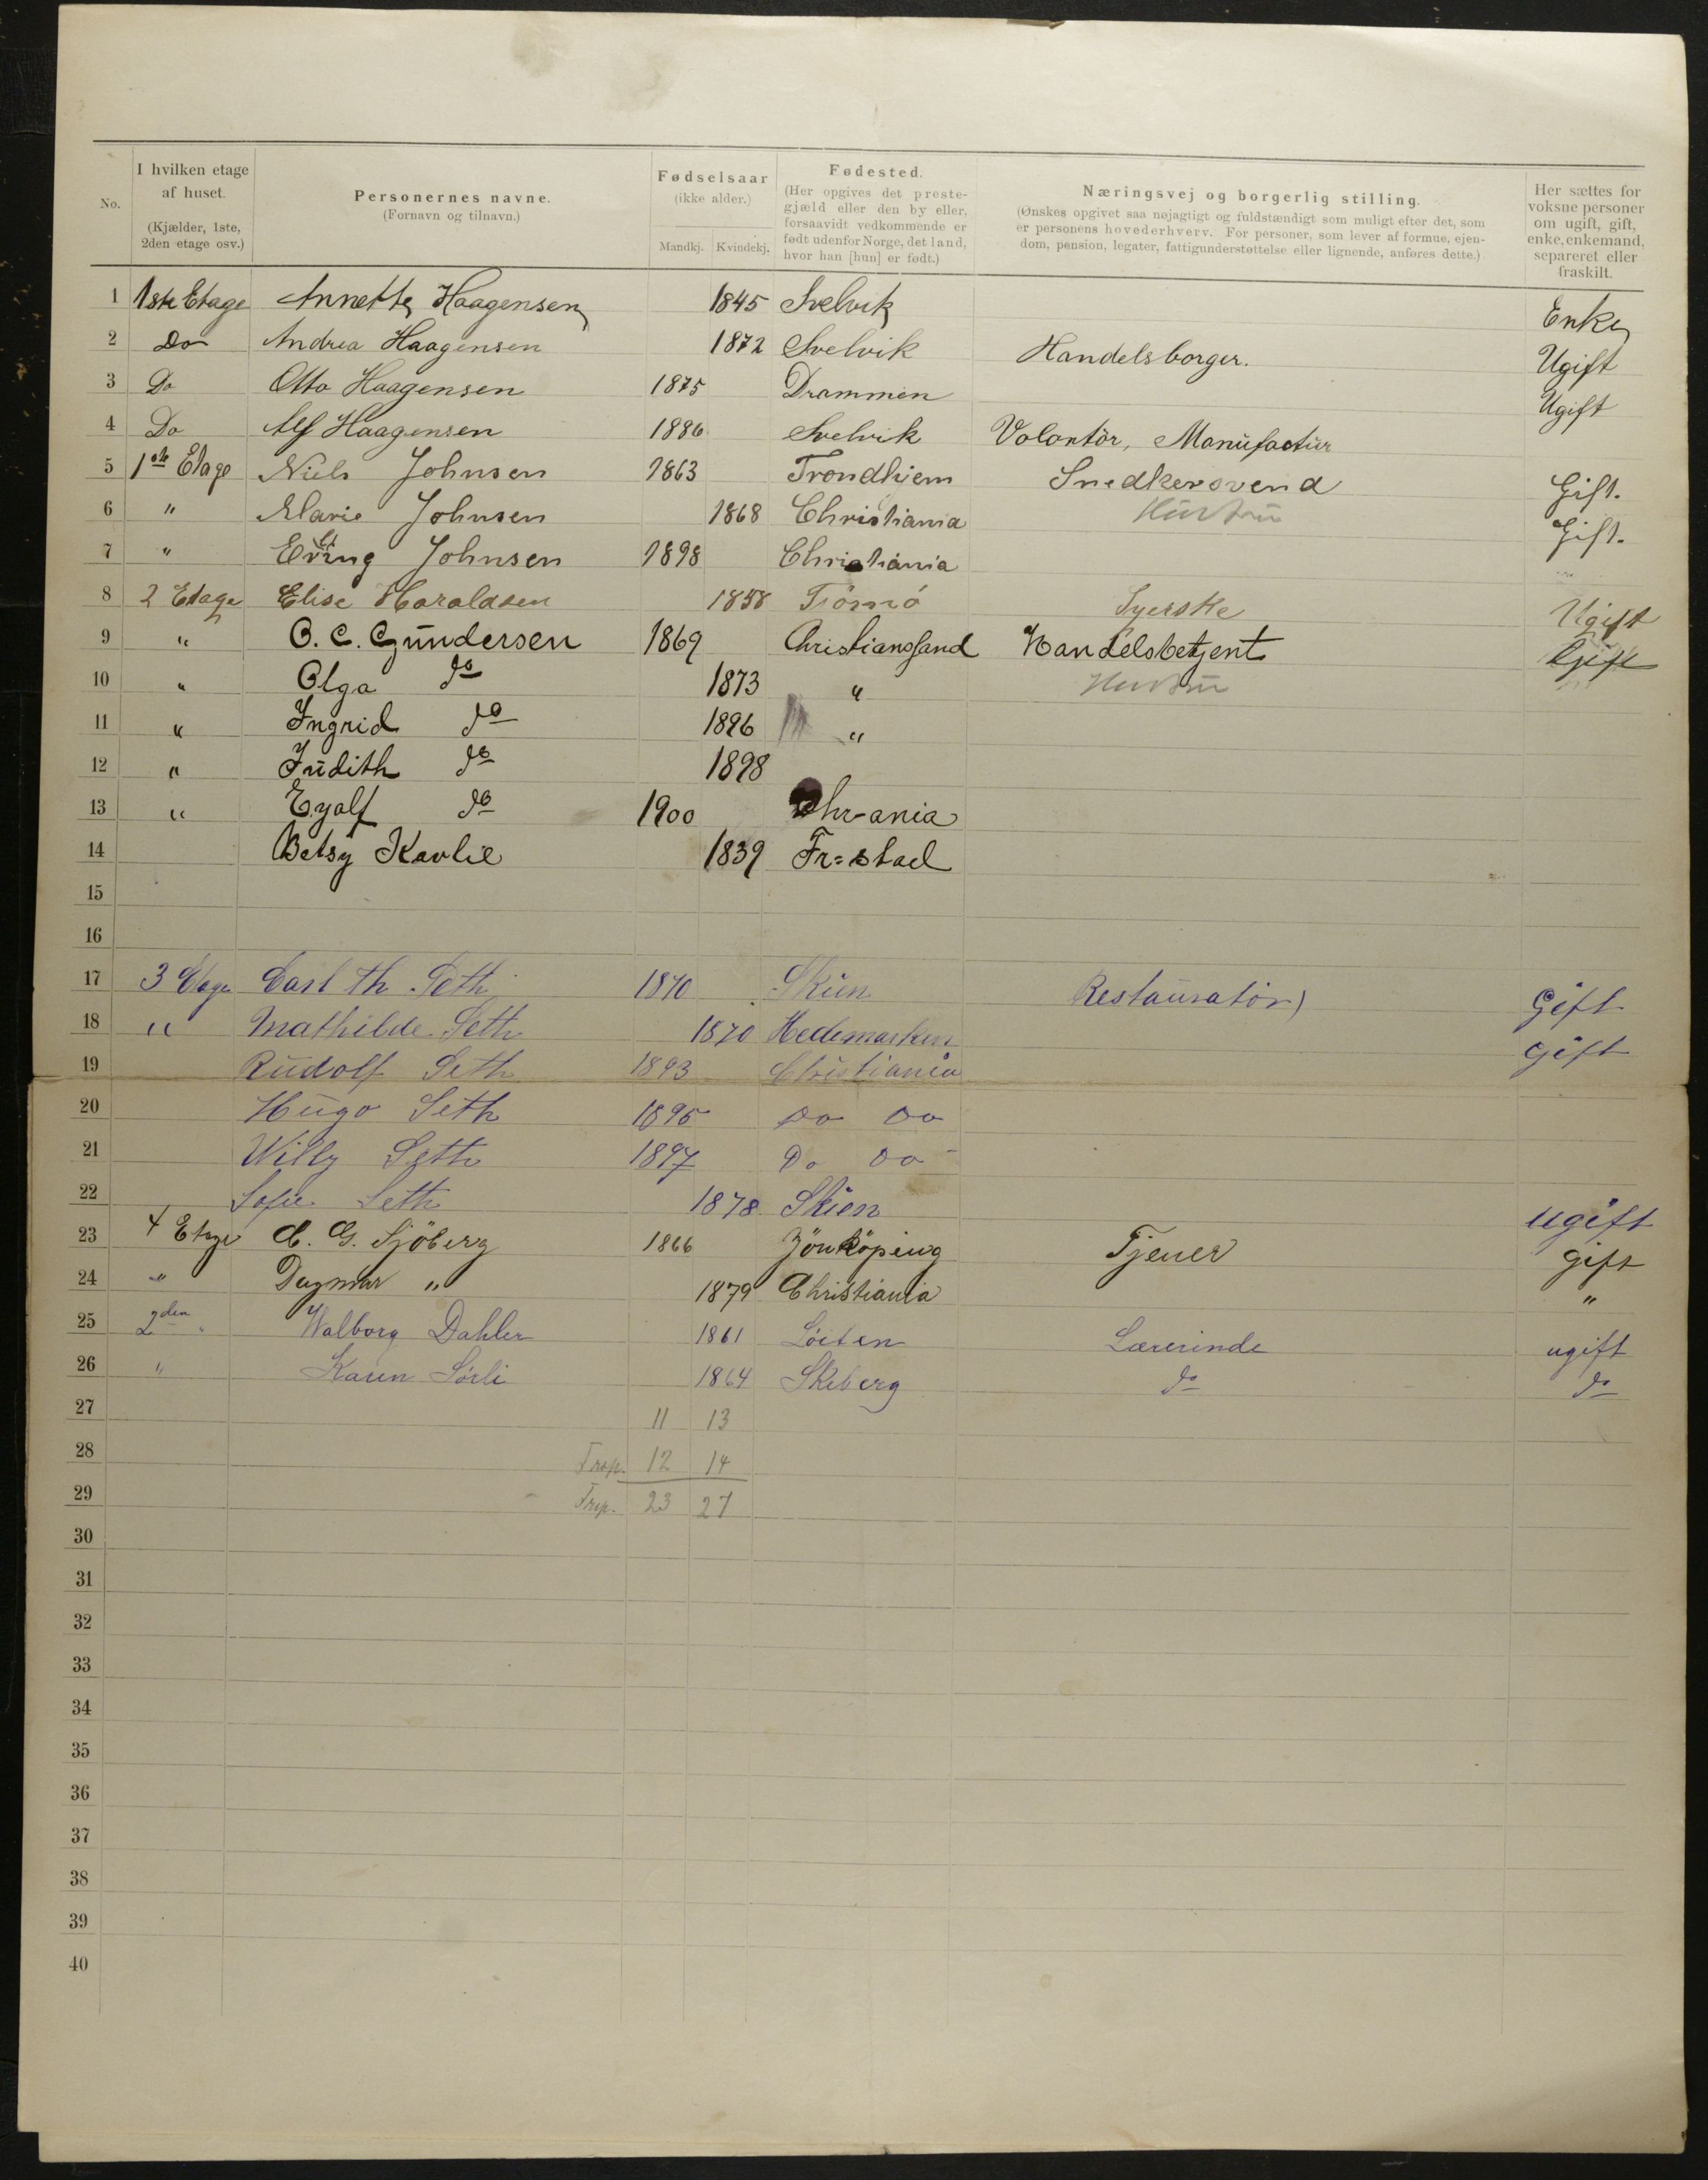 No.
I hvilken etage af huset. (Kjælder, 1ste, 2den etage osv.)
Personernes navne. (Fornavn og tilnavn.)
Fødselsaar (ikke alder.) Mandkj. Kvindekj.
Fødested. (Her opgives det prestegjæld eller den by eller, forsaavidt vedkommende er født udenfor Norge, det land, hvor han [hun] er født.)
Næringsvej og borgerlig stilling. (Ønskes opgivet saa nøjagtigt og fuldstændigt som muligt efter det, som er personens hovederhverv. For personer, som lever af formue, ejendom, pension, legater, fattigunderstøttelse eller lignende, anføres dette.)
Her sættes for voksne personer om ugift, gift, enke, enkemand, separeret eller fraskilt.
1 1ste Etage Annette Haagensen 1845 Svelvik Enke
2 Do Andrea Haagensen 1872 Svelvik Handelsborger. Ugift
3 Do Otto Haagensen 1875 Drammen Ugift
4 Do Alf Haagensen 1886 Svelvik Volontör, Manufactur
5 1ste Etage Niels Johnsen 1863 Trondhiem Snedkersvend Gift.
6 " Marie Johnsen 1868 Christiania Hustru Gift.
7 " Erling Johnsen 1898 Christiania
8 2 Etage Elise Haraldsen 1858 Tromö Syerske Ugift
9 " O. C. Gundersen 1869 Christianssand Handelsbetjent Gift
10 " Olga do 1873 " Hustru
11 " Ingrid do 1896 "
12 " Judith do 1898
13 " Eyalf do 1900 Chr-ania
14 Betsy Kavlie 1839 Fr=stad
15
16
17 3 Etage Carl Th. Seth 1870 Skien Restauratör Gift
18 " Mathilde Seth 1870 Hedemarken Gift
19 Rudolf Seth 1893 Christiania
20 Hugo Seth 1895 Do Do
21 Willy Seth 1897 Do Do
22 Sofie Seth 1878 Skien Ugift
23 4 Etage C. G. Sjöberg 1866 Jönköping Tjener Gift
24 " Dagmar " 1879 Christiania "
25 2den " Walborg Dahler 1861 Löiten Lærerinde ugift
26 " Karen Sörli 1864 Skeberg do do
27 11 13
28 Trsp. 12 14
29 Trsp. 23 27
30
31
32
33
34
35
36
37
38
39
40